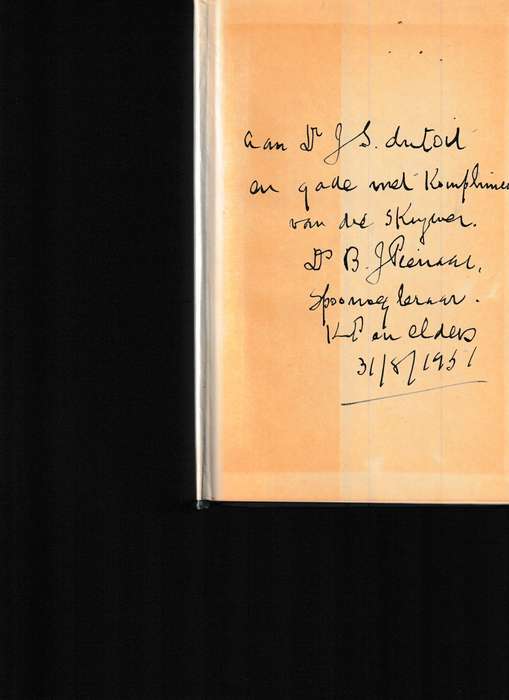 aan Dr J S. dutoit
en gade met Komplime
van die skrywer.
Ds B. J Pienaar,
Spoorwegleraar.
K.P en elders
31/8/1951